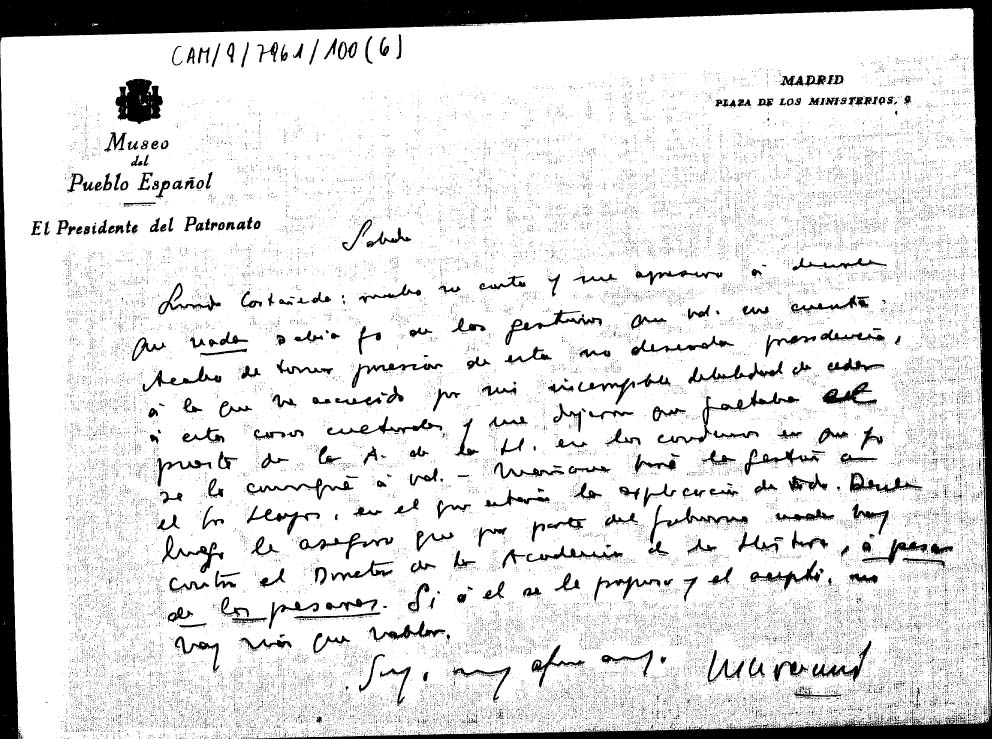 CAM/9/7961/100(6)
MADRID
PLAZA DE LOS MINISTERIOS, 9
Museo
del
Pueblo Español
El Presidente del Patronato
Sabado
Querido Castañeda: recibo su carta y me apresuro á decirle
que nada sabia yo de las gestiones que vd. me cuenta.
Acabo de tomar posesión de esta no deseada presidencia,
á la que he accedido por mi incorregible debilidad de ceder
á estas cosas culturales y me dijeron que faltaba el
puesto de la A. de la H. en las condiciones en que yo
se lo comuniqué á vd. - Mañana haré la gestión con
el Sr. en el que estará la explicación de todo. Desde
luego le aseguro que por parte del gobierno nada hay
contra el Director de la Academia de la Historia, á pesar
de los pesares. Si á el se le propuso y el aceptó, no
hay más que hablar.
Suyo, muy afmo amigo.
Marañón